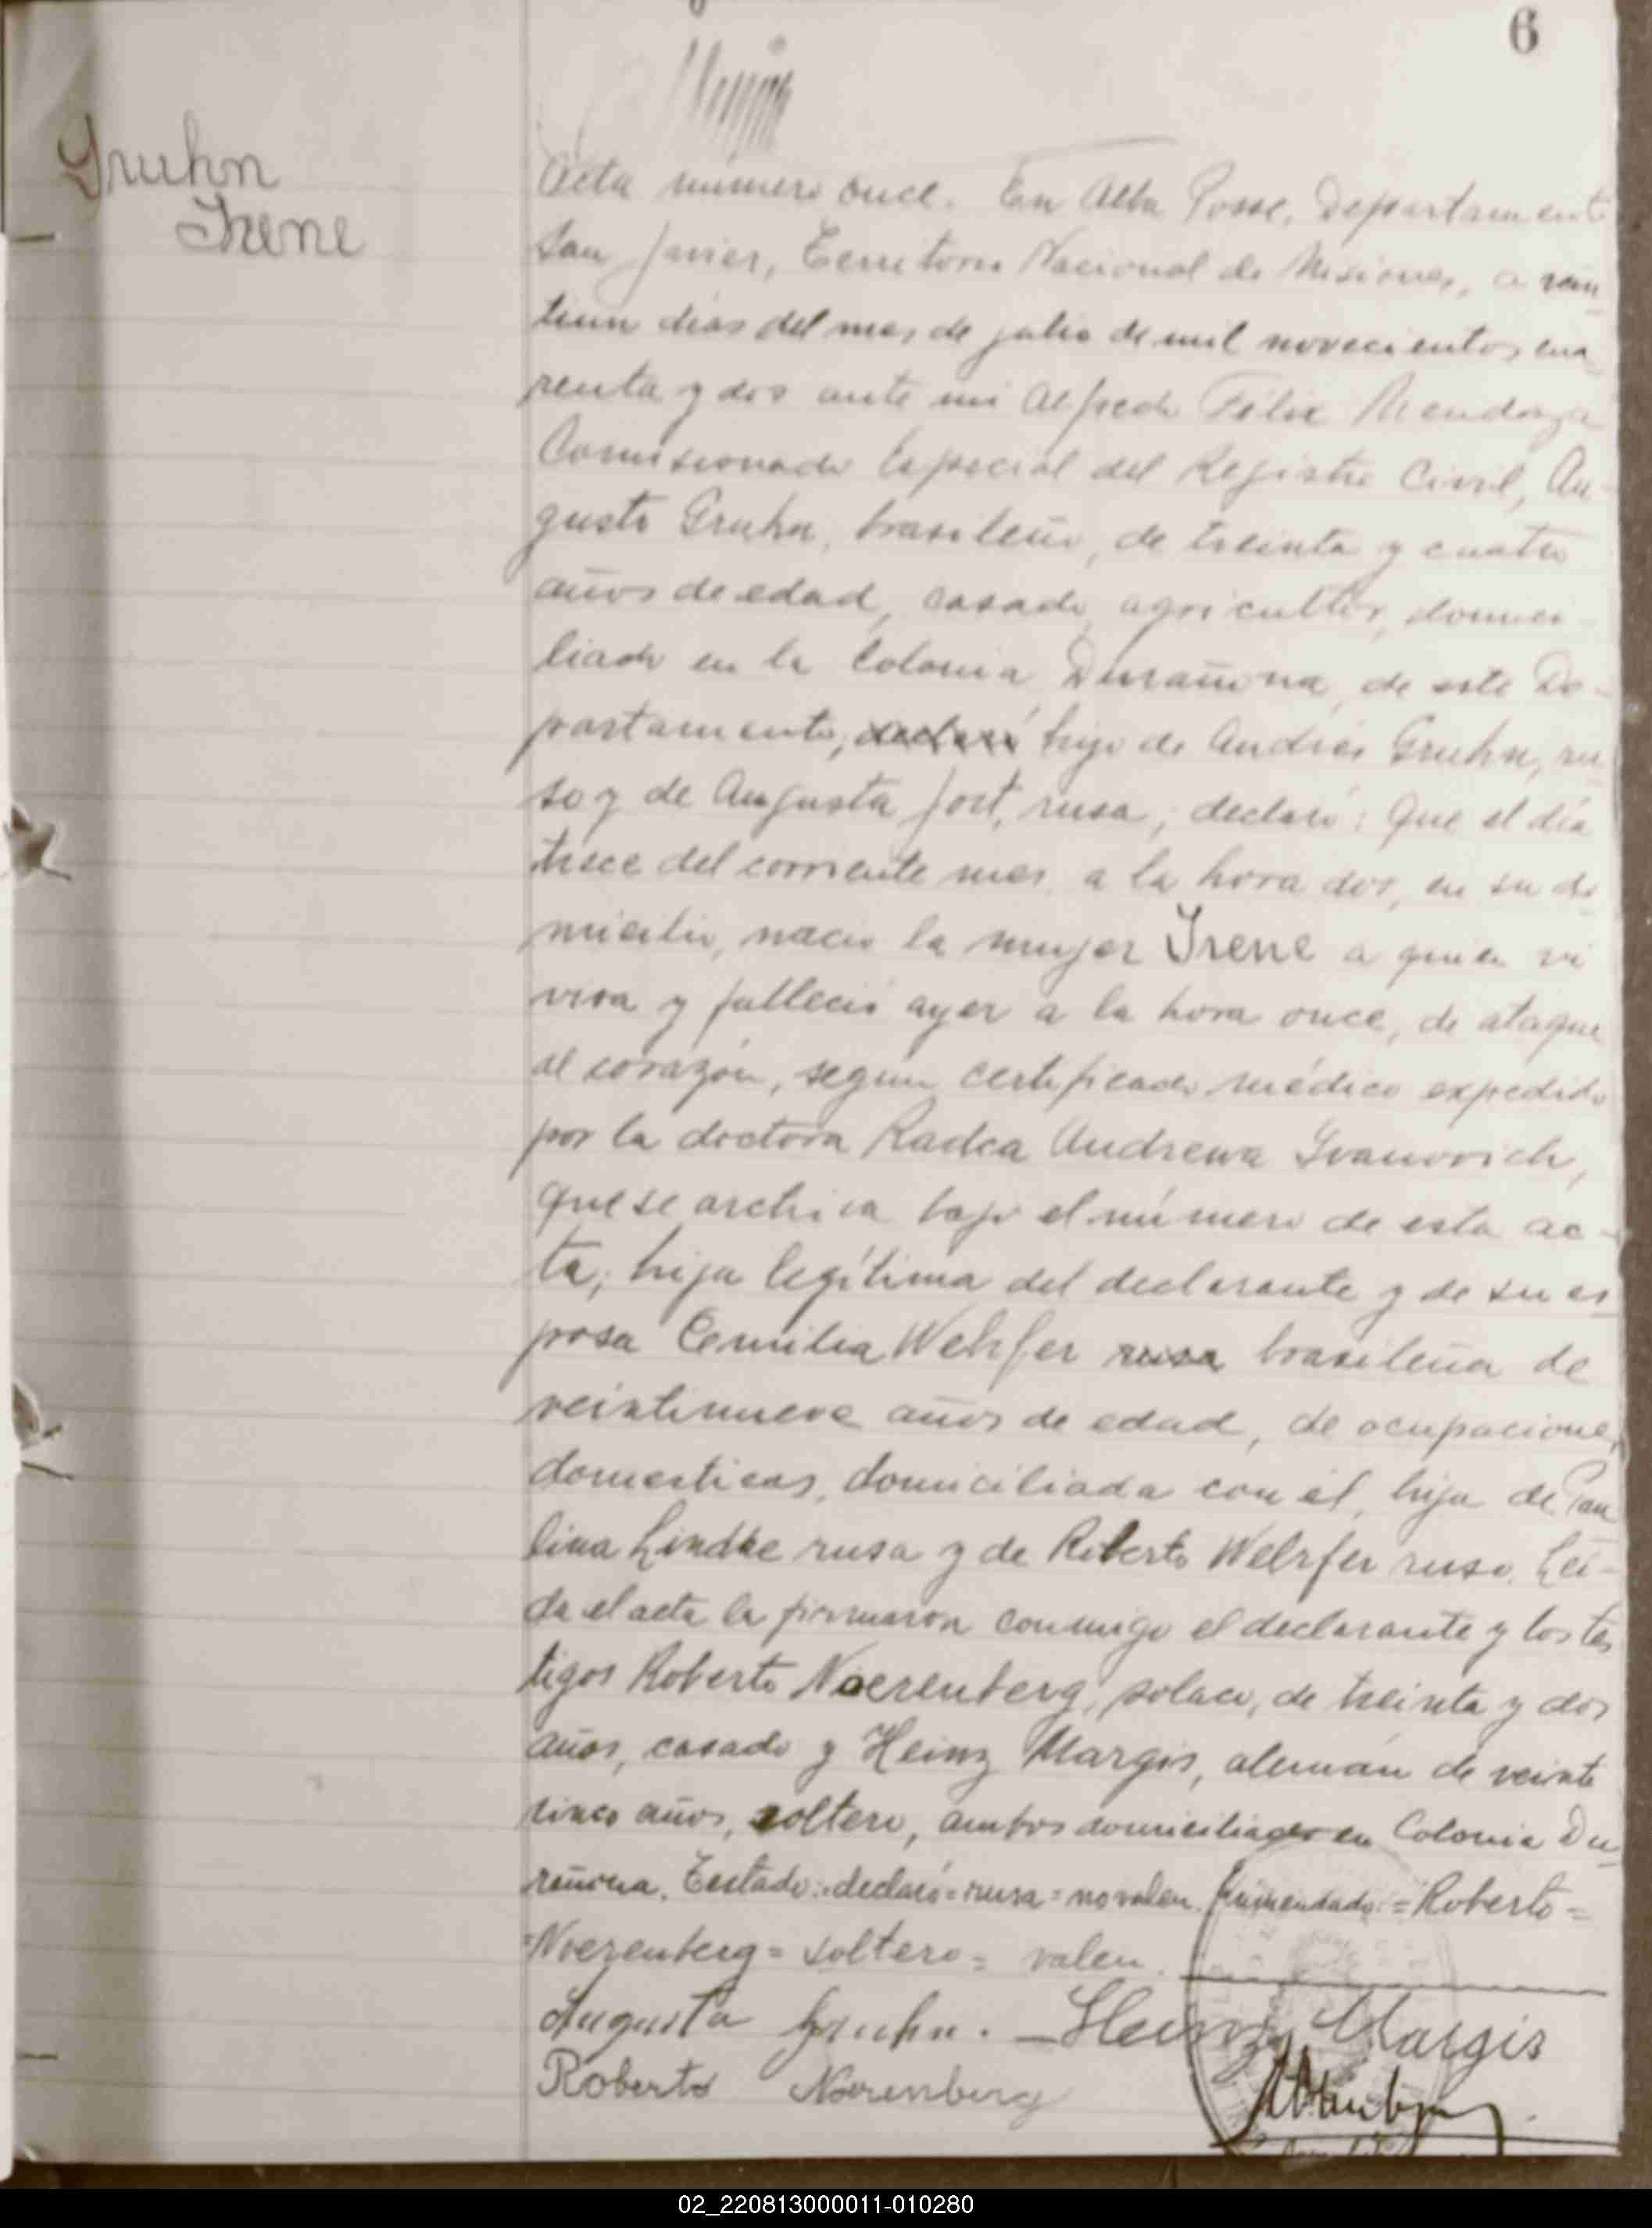 6
Gruhn
Irene
Acta número once. En Alba Posse, Departamento
San Javier, Territorio Nacional de Misiones, a vein
tiun dias del mes de julio de mil novecientos cua
renta y dos ante mi Alfredo Félix Mendoza
Comisionado Especial del Registro Civil, Au-
gusto Gruhn, brasileño, de treinta y cuatro
años de edad, casado, agricultor, domici-
liado en la Colonia Durañona, de este De-
partamento, declaró hijo de Andrés Gruhn, ru
so y de Augusta Jost, rusa; declaró: Que el día
trece del corriente mes a la hora dos, en su do
micilio, nació la mujer Irene a quien vi
viva y falleció ayer a la hora once, de ataque
al corazón, según certificado médico expedido
por la doctora Radca Andrewa Ivanovich,
que se archiva bajo el número de esta ac-
ta; hija legítima del declarante y de su es
posa Emilia Wehfer rusa brasileña de
veintinueve años de edad, de ocupaciones
domesticas, domiciliada con él, hija de Pau
lina Lindke rusa y de Roberto Wehfer ruso. Lei-
da el acta la firmaron conmigo el declarante y los tes
tigos Roberto Noerenberg, polaco, de treinta y dos
años, casado y Heinz Margis, alemán de veinte
cinco años, soltero, ambos domiciliados en Colonia Du
rañona. Testado: declaró = rusa = no valen. Enmendado: = Roberto =
= Noerenberg = soltero = valen.
Augusto Gruhn. — Heinz Margis
Roberto Noerenberg
02_220813000011-010280